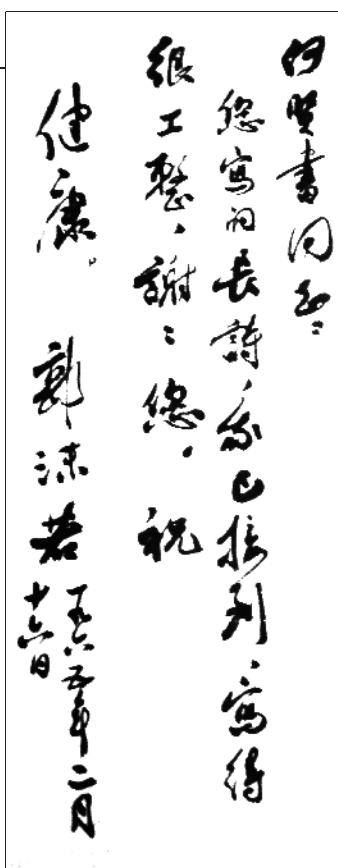 何贤書同志：
您寫的長詩，我已接到，寫得
很工整，謝：您。祝
健康。 郭沫若
一九六五年二月
十六日